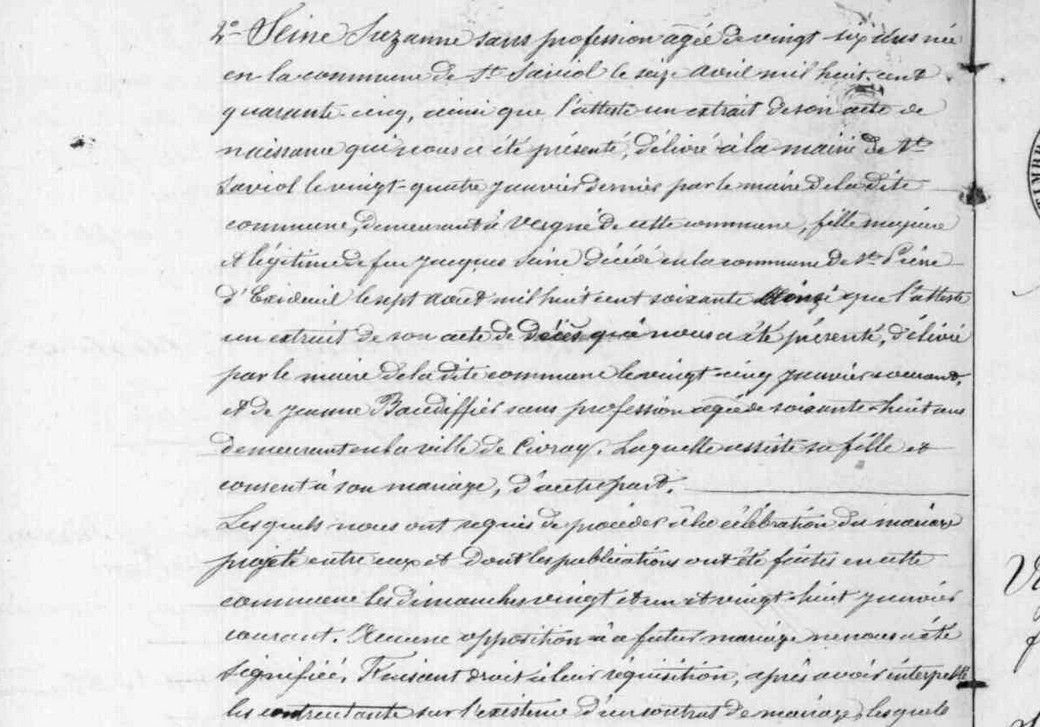 2° Seine Suzanne sans profession agée de vingt six ans née
en la commune de St Saviol le seize avril mil huit cent
quarante-cinq, ainsi que l'atteste un extrait de son acte de
naissance qui nous a été présenté, délivré à la mairie de St
Saviol le vingt-quatre janvier dernier par le maire de la dite
commune, demeurant à Vergné de cette commune, fille majeure
et légitime de feu Jacques Seine décédé en la commune de St Pierre
d'Exideuil le sept août mil huit cent soixante onze que l'atteste
un extrait de son acte de décès qui nous a été présenté, délivré
par le maire de la dite commune le vingt-cinq janvier courant,
et de Jeanne Baudiffier sans profession agée de soixante-huit ans
demeurant en la ville de Civray, laquelle assiste sa fille et
consent à son mariage, d'autre part.
Lesquels nous ont requis de procéder à la célébration du mariage
projeté entre eux et dont les publications ont été faites en cette
commune les dimanches vingt et un et vingt-huit janvier
courant. Aucune opposition à ce futur mariage ne nous a été
signifiée, Faisant droit à leur réquisition, après avoir interpellé
les contractants sur l'existence d'un contrat de mariage, lesquels
TIMBRE